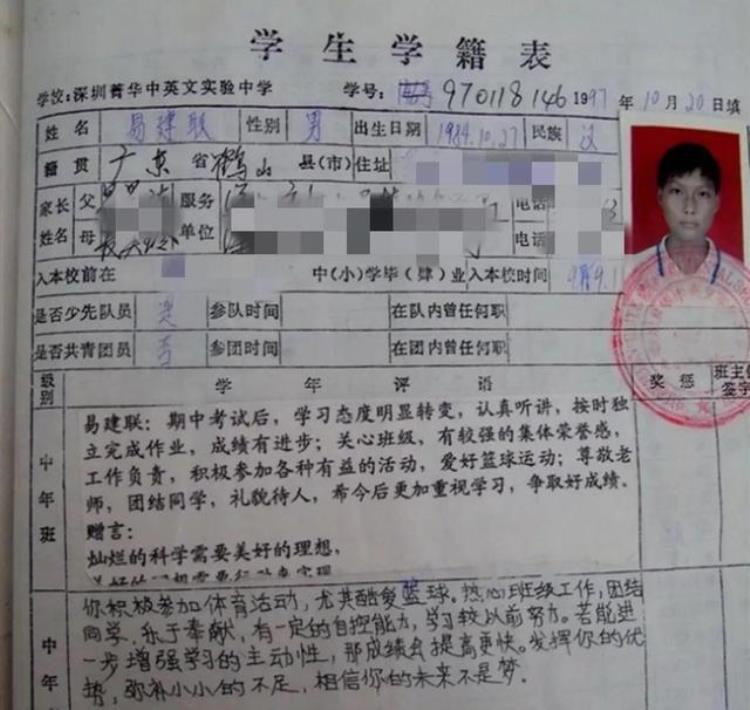 学生学籍表
学校:深圳菁华中英文实验中学 学号: 970118146 1997年10月20日填
姓名 易建联 性别 男 出生日期 1984.10.27 民族 汉
籍贯 广东省鹤山县(市) 住址
家长 父 服务 电话
姓名 母 单位 电话
入本校前在 中(小)学毕(肄)业 入本校时间
是否少先队员 是 参队时间 在队内曾任何职
是否共青团员 否 参团时间 在团内曾任何职
级别 学年评语 奖惩 班主任签字
中年班
易建联:期中考试后,学习态度明显转变,认真听讲,按时独
立完成作业,成绩有进步;关心班级,有较强的集体荣誉感,
工作负责,积极参加各种有益的活动,爱好篮球运动;尊敬老
师,团结同学,礼貌待人,希今后更加重视学习,争取好成绩。
赠言:
灿烂的科学需要美好的理想,
中年
你积极参加体育活动,尤其酷爱篮球。热心班级工作,团结
同学,乐于奉献,有一定的自控能力,学习较以前努力。若能进
一步增强学习的主动性,那成绩会提高更快。发挥你的优
势,弥补小小的不足,相信你的未来不是梦.